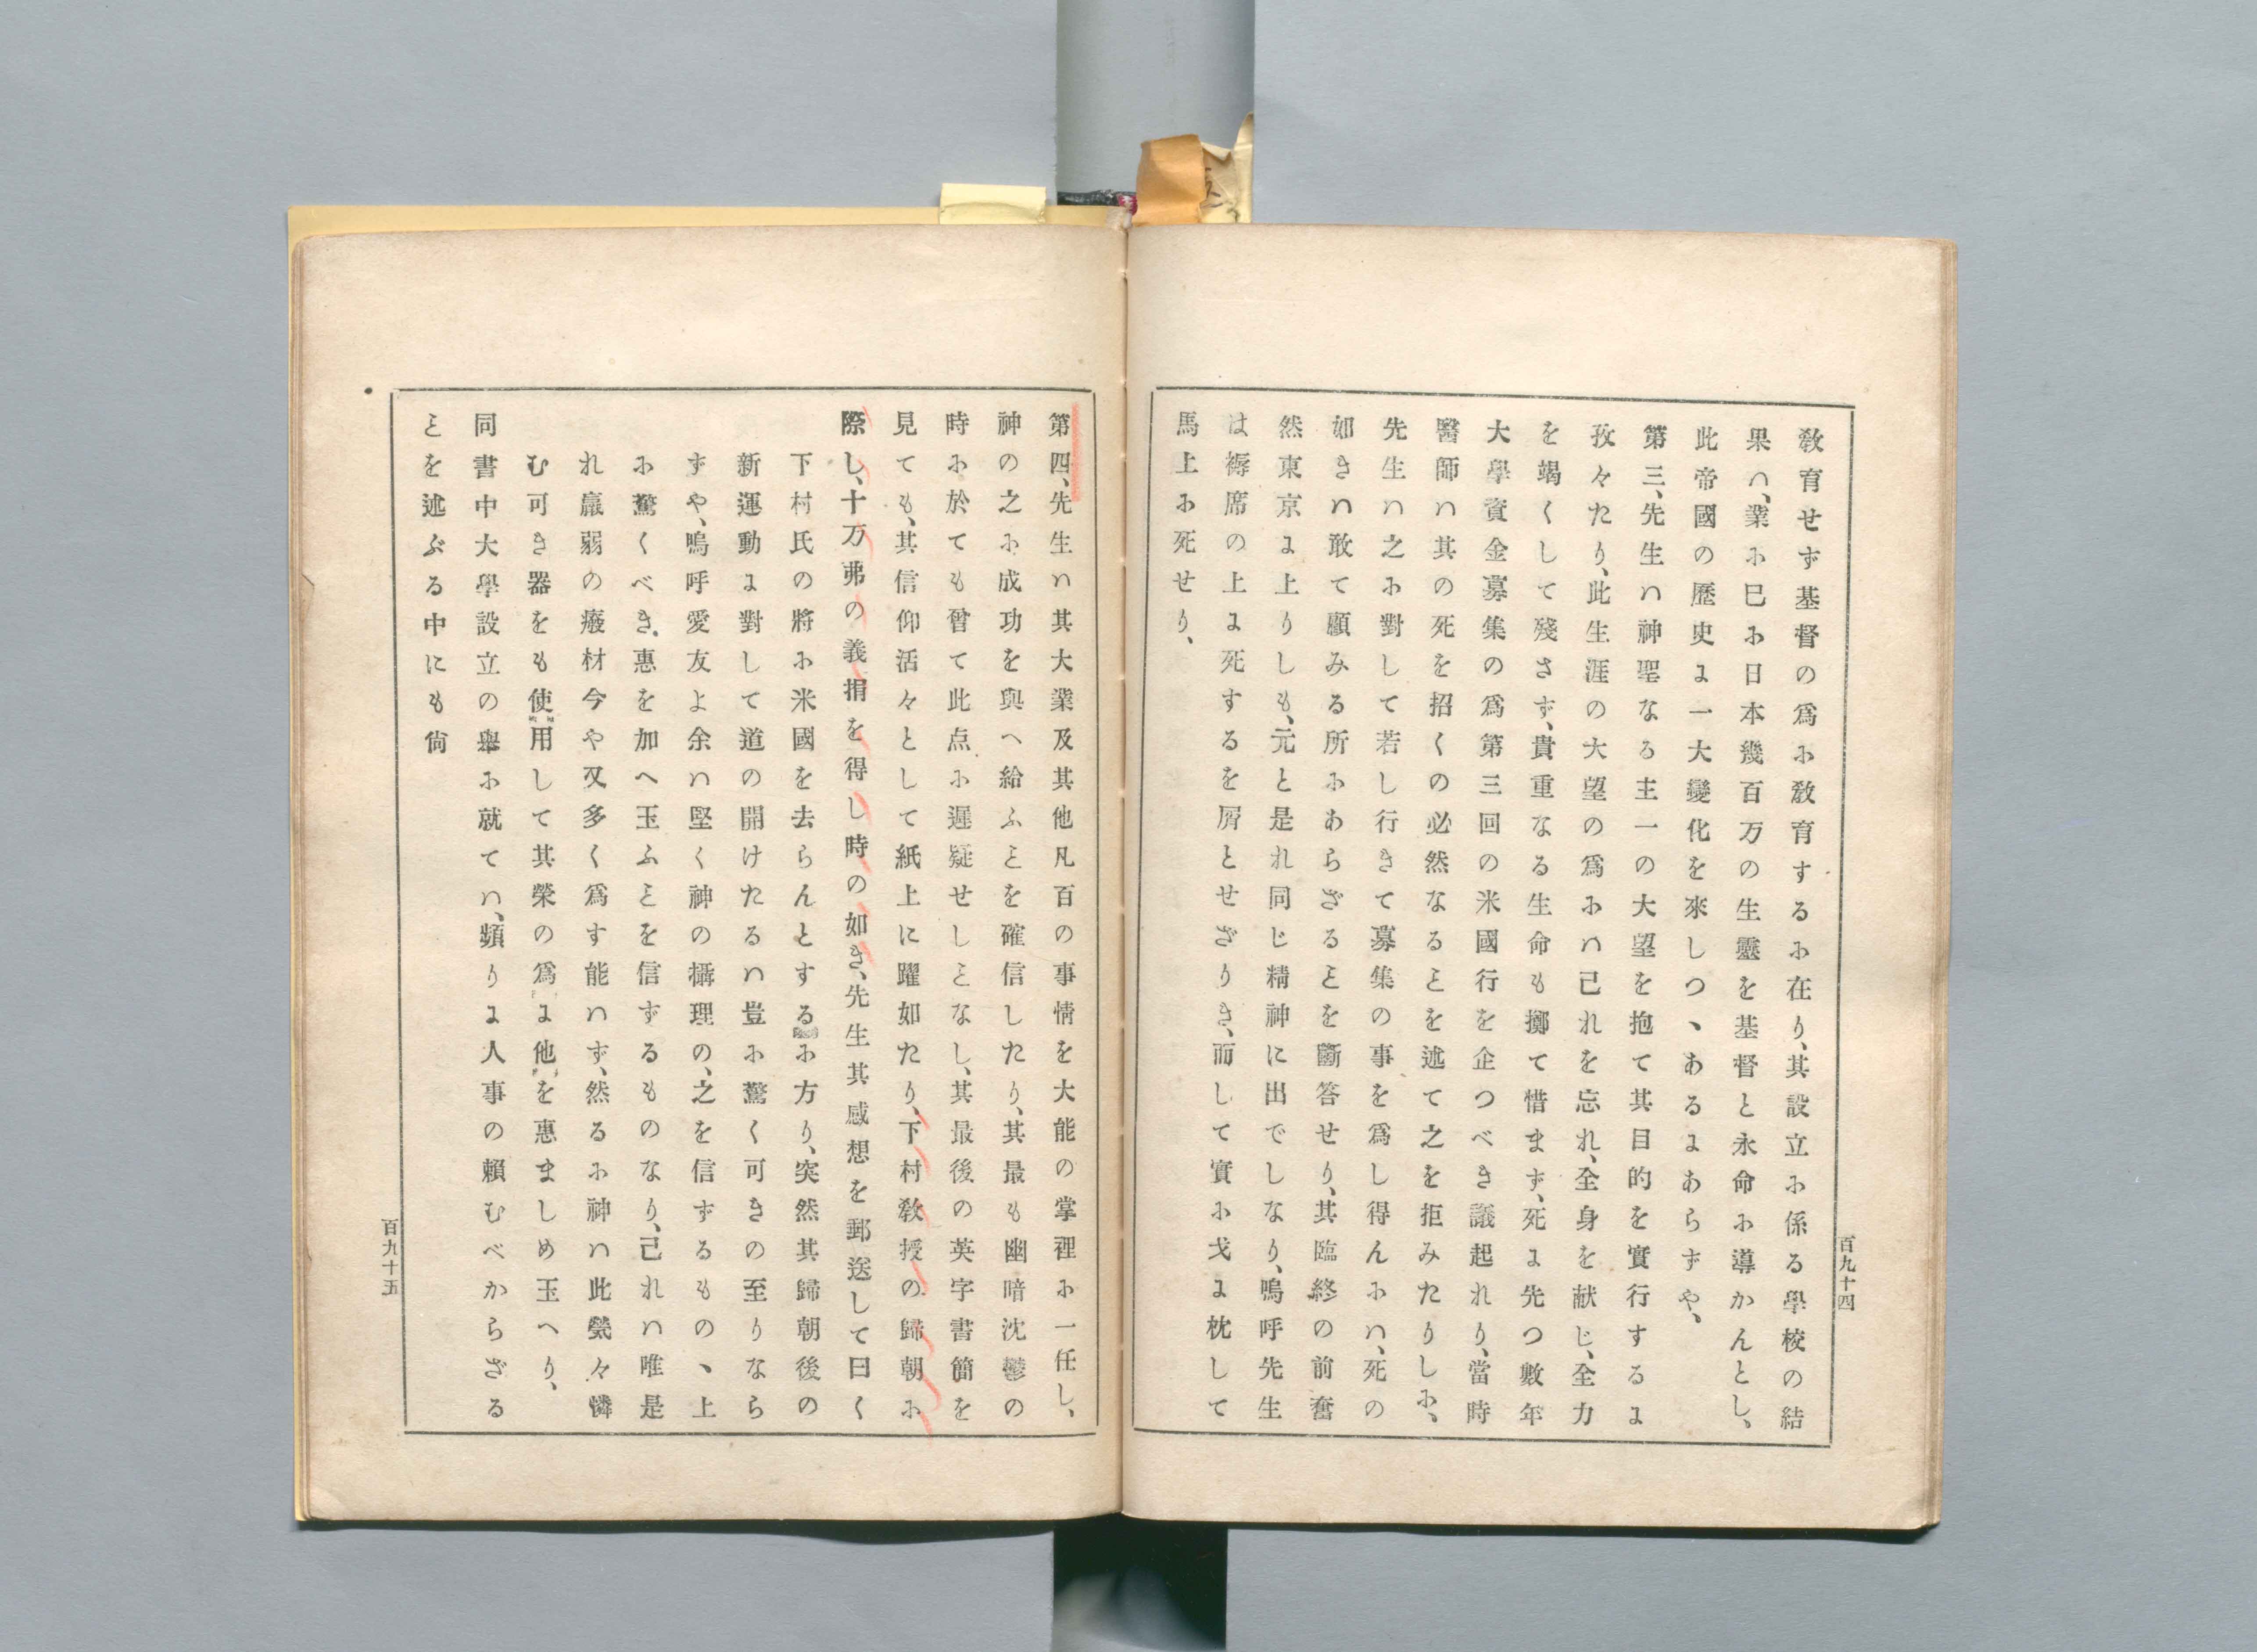 敎育せず基督の爲に敎育するに在り、其設立に係る學校の結
果ハ、業に已に日本幾百万の生靈を基督と永命に導かんとし、
此帝國の歷史に一大變化を來しつヽあるにあらずや、
第三、先生ハ神聖なる主一の大望を抱て其目的を實行するに
孜々たり、此生涯の大望の爲にハ己れを忘れ、全身を献じ、全力
を竭くして殘さず、貴重なる生命も擲て惜まず、死に先つ數年
大學資金募集の爲第三回の米國行を企つべき議起れり、當時
醫師ハ其の死を招くの必然なるヿを述て之を拒みたりしに、
先生ハ之に對して若し行きて募集の事を爲し得んにハ、死の
如きハ敢て顧みる所にあらざるヿを斷答せり、其臨終の前奮
然東京に上りしも、元と是れ同じ精神に出でしなり、嗚呼先生
は褥席の上に死するを屑とせざりき、而して實に戈に枕して
馬上に死せり、
百九十四
第四、先生ハ其大業及其他凡百の事情を大能の掌裡に一任し、
神の之に成功を與へ給ふヿを確信したり、其最も幽暗沈鬱の
時に於ても曾て此点に遲疑せしヿなし、其最後の英字書簡を
見ても、其信仰活々として紙上に躍如たり、下村敎授の歸朝に
際し、十万弗の義捐を得し時の如き、先生其感想を郵送して曰く
下村氏の將に米國を去らんとするに方り、突然其歸朝後の
新運動に對して道の開けたるハ豈に驚く可きの至りなら
ずや、嗚呼愛友よ余ハ堅く神の攝理の、之を信ずるものヽ上
に驚くべき惠を加へ玉ふヿを信ずるものなり、己れハ唯是
れ羸弱の癈材今や又多く爲す能ハず、然るに神ハ此煢々憐
む可き器をも使用して其榮の爲に他を惠ましめ玉へり、
同書中大學設立の擧に就てハ、頻りに人事の賴むべからざる
ヿを述ぶる中にも尙
百九十五